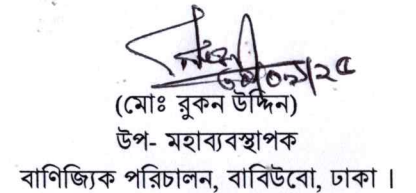 (মোঃ রুকন উদ্দিন)
উপ- মহাব্যবস্থাপক
বাণিজ্যিক পরিচালন, বাবিউবো, ঢাকা ।